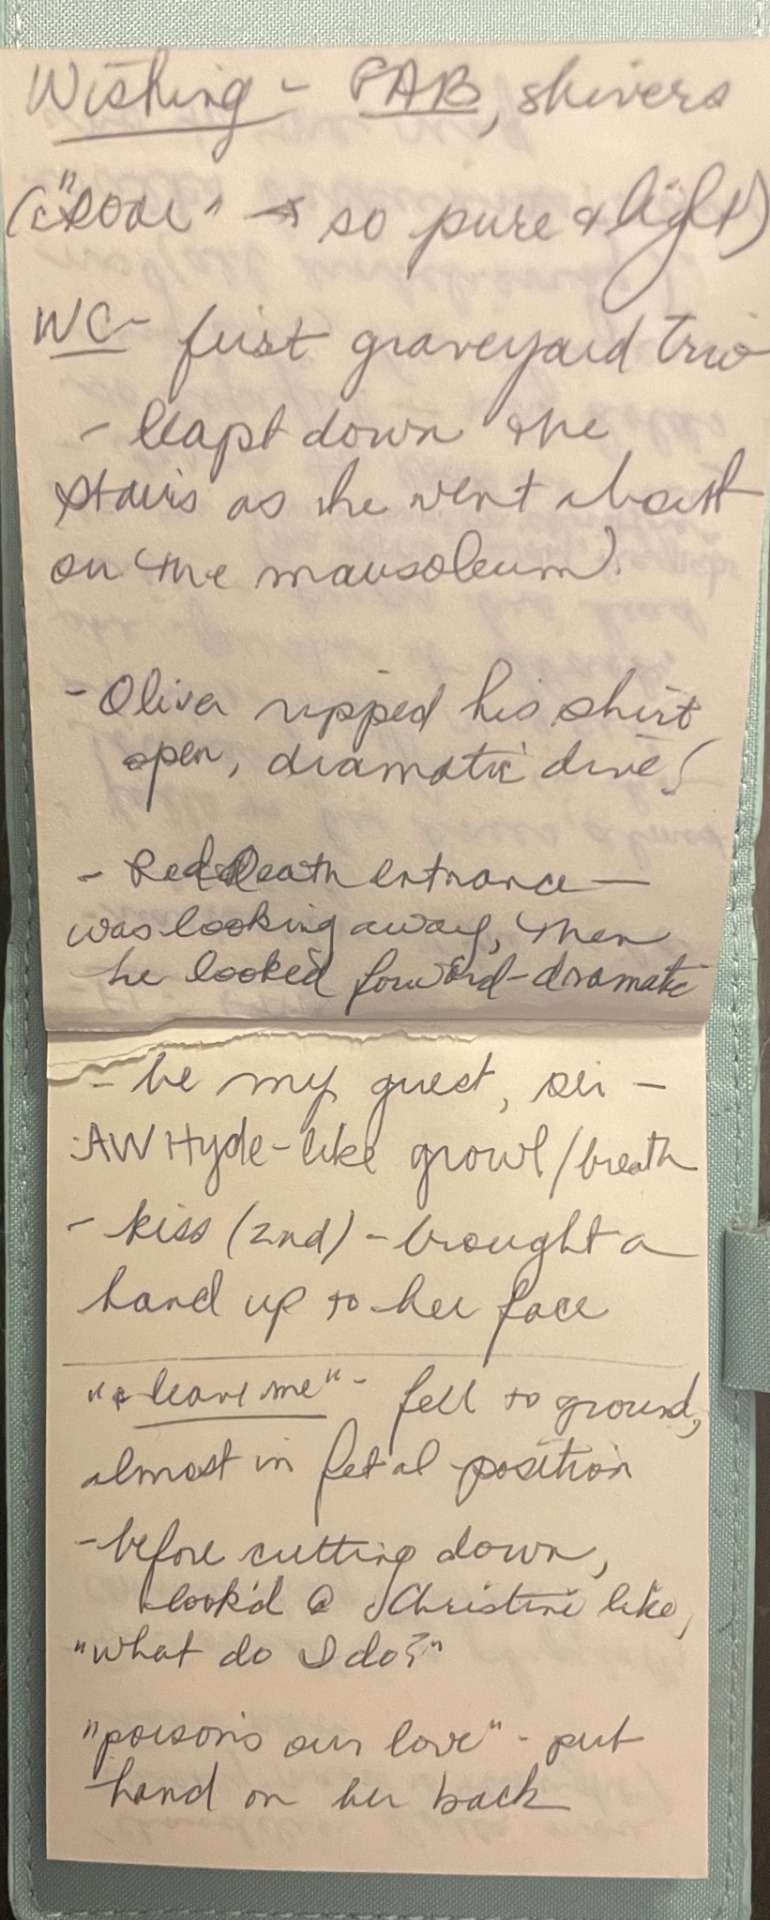 Wishing - PAB, shivers
→ so pure & light)
WC - first graveyard trio
- leapt down the
stairs as she went about
on the mausoleum).
- Oliver ripped his shirt
open, dramatic dive!
- Red Death entrance —
was looking away, then
he looked forward - dramatic
- be my guest, sir -
AW Hyde-like growl/breath
- kiss (2nd) - brought a
hand up to her face
"leave me" - fell to ground,
almost in fetal position
- before cutting down,
look'd @ Christine like,
"what do I do?"
"poisons our love" - put
hand on her back